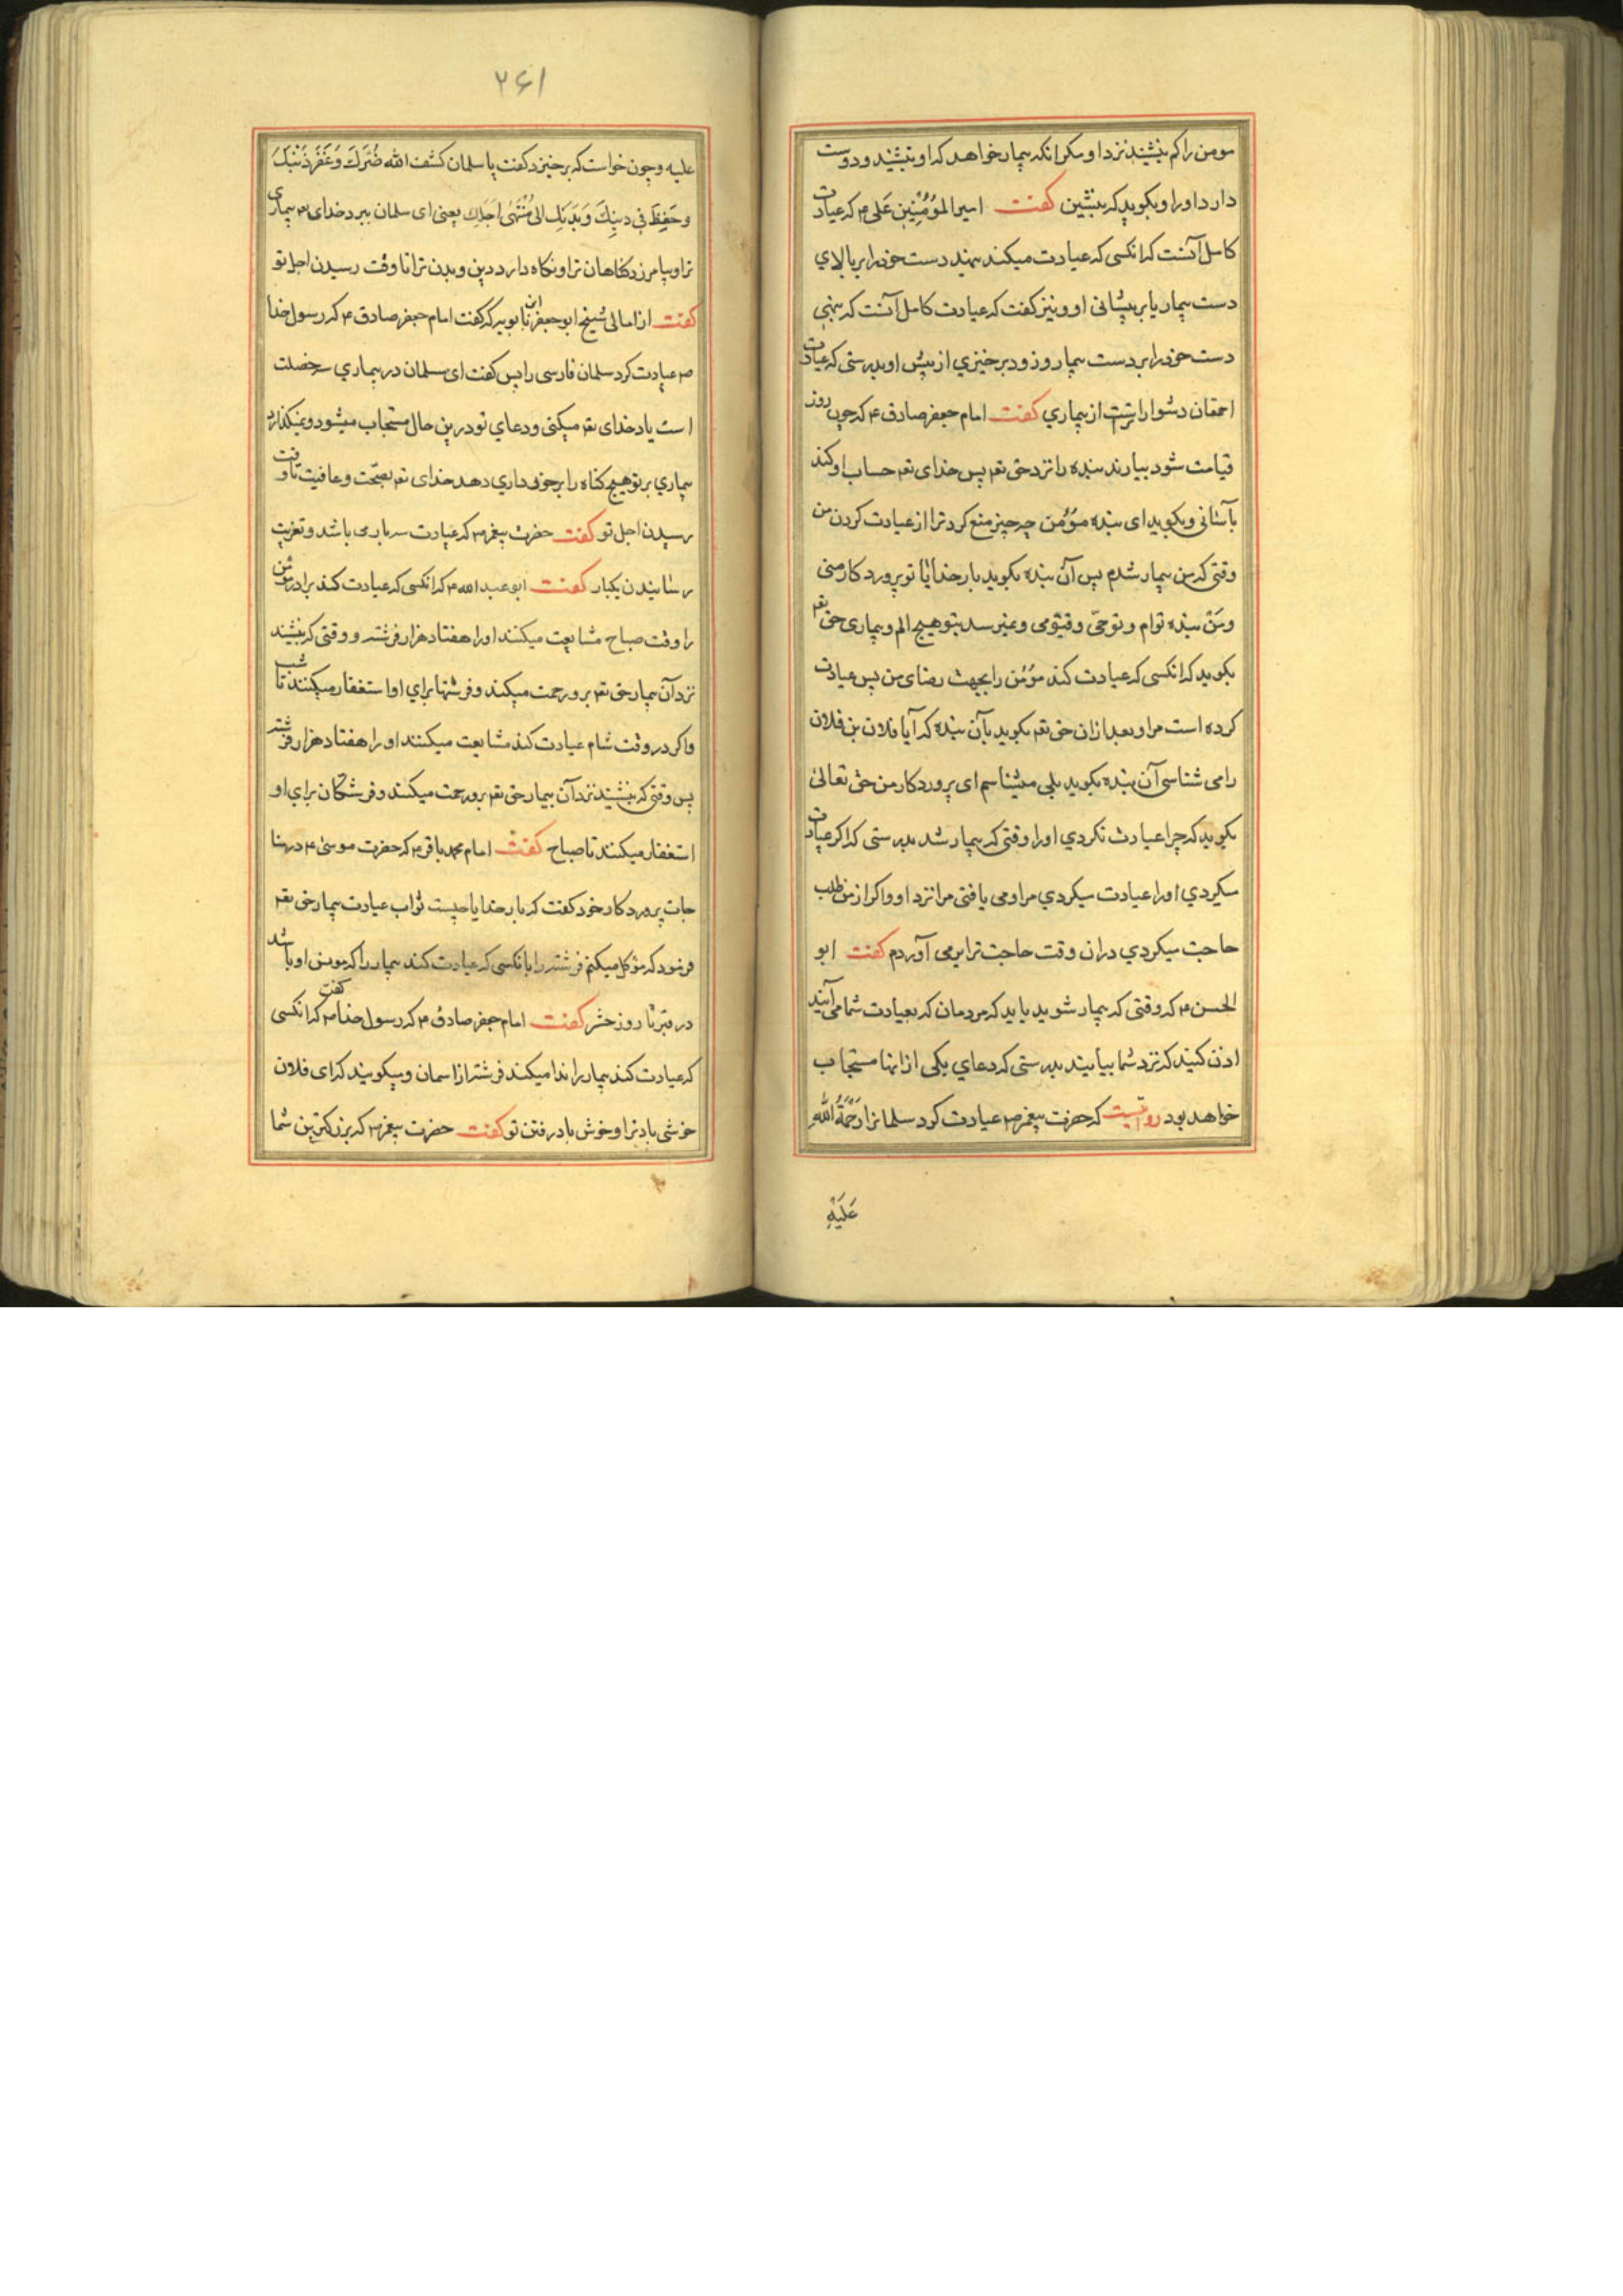 مومن را کم بنشیند نزد او مکر انکه بیمار خواهد که او بنشیند و دوست
دارد او را و بکوید که بنشین کفت امیر المؤمنین علی ع م که عیادت
کامل آنست که انکسی که عیادت میکند بنهد دست خود را بر بالای
دست بیمار یا بر پیشانی او و نیز کفت که عیادت کامل آنست که بنهی
دست خود را بر دست بیمار و زود برخیزی از پیش او بدرستی که عیادت
احمقان دشوارترست از بیماری کفت امام جعفر صادق ع م که چون روز
قیامت شود بیارند بنده را نزد حق تع پس خدای تع حساب او کند
بآسانی و بکوید ای بنده مؤمن چه چیز منع کرد ترا از عیادت کردن من
وقتی که من بیمار شدم پس آن بنده بکوید بار خدایا تو پروردکار منی
و من بنده توام و تو حیّ و قیّومی و نمیرسد بتو هیچ الم و بیماری حق تع
بکوید که انکسی که عیادت کند مؤمن را بجهت رضای من پس عیادت
کرده است مرا و بعد ازان حق تع بکوید بآن بنده که آیا فلان بن فلان
را می شناسی آن بنده بکوید بلی میشناسم ای پروردکار من حق تعالی
بکوید که چرا عیادت نکردی او را وقتی که بیمار شد بدرستی که اکر عیادت
میکردی او را عیادت میکردی مرا و می یافتی مرا نزد او و اکر از من طلب
حاجت میکردی دران وقت حاجت ترا برمی آوردم کفت ابو
الحسن ع م که وقتی که بیمار شوید باید که مردمان که بعیادت شما می آیند
اذن کنید که نزد شما بیایند بدرستی که دعای یکی از انها مستجاب
خواهد بود روایتست که حضرت پیغمبر ص م عیادت کرد سلمانرا رَحْمَةُ اللهِ
عَلَیْهِ
۲۶۱
علیه و چون خواست که برخیزد کفت یا سلمان کشف الله ضُرَّكَ وَغَفَرَ ذَنْبَكَ
وحَفِظَ فی دینِكَ وَبَدَنِكَ الی مُنْتَهٰی اَجَلِكَ یعنی ای سلمان ببرد خدای تع بیماری
ترا و بیامرزد کناهان ترا و نکاه دارد دین و بدن ترا تا وقت رسیدن اجل تو
کفت از امالی شیخ ابو جعفر ابن بابویه که کفت امام جعفر صادق ع م که رسول خدا
ص م عیادت کرد سلمان فارسی را پس کفت ای سلمان در بیماری سه خصلت
است یاد خدای تع میکنی و دعای تو درین حال مستجاب میشود و نمیکذارد
بیماری بر تو هیچ کناه را برخورداری دهد خدای تع بصحّت و عافیت تا وقت
رسیدن اجل تو کفت حضرت پیغمبر ص م که عیادت سه بار می باشد و تعزیت
رسانیدن یکبار کفت ابو عبد الله ع م که انکسی که عیادت کند برادر مؤمن
را وقت صباح مشایعت میکنند او را هفتاد هزار فرشته و وقتی که بنشیند
نزد آن بیمار حق تع برو رحمت میکند و فرشتها برای او استغفار میکنند تا شب
و اکر در وقت شام عیادت کند مشایعت میکنند او را هفتاد هزار فرشته
پس وقتی که بنشیند نزد آن بیمار حق تع برو رحمت میکند و فرشتکان برای او
استغفار میکنند تا صباح کفت امام محمد باقر ع م که حضرت موسی ع م در منا
جات پروردکار خود کفت که بار خدایا چیست ثواب عیادت بیمار حق تع
فرمود که موکل میکنم فرشته را بانکسی که عیادت کند بیمار را که مونس او باشد
در قبر تا روز حشر کفت امام جعفر صادق ع م که رسول خدا ص م کفت که انکسی
که عیادت کند بیمار را ندا میکند فرشته از اسمان و میکویند که ای فلان
خوشی باد ترا و خوش باد رفتن تو کفت حضرت پیغمبر ص م که بزرکترین شما